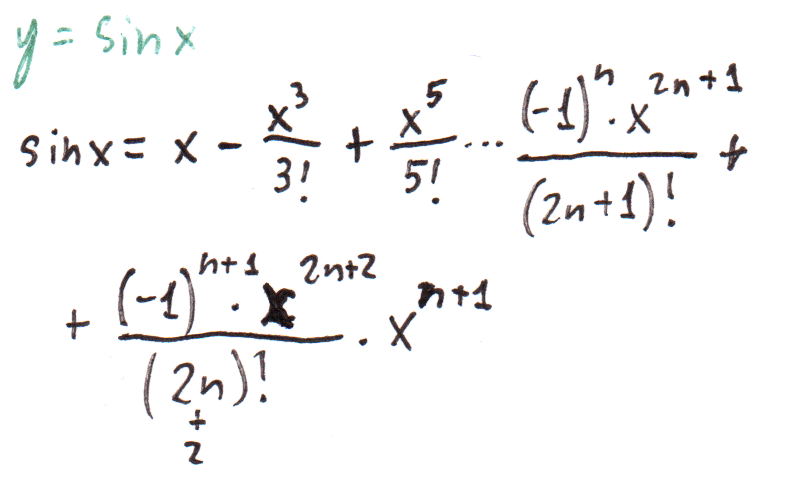 y = sin x
sin x = x - x^3/3! + x^5/5! ... (-1)^n · x^(2n+1)/(2n+1)! +
+ (-1)^(n+1) · x^(2n+2)/(2n+2)! · x^(n+1)